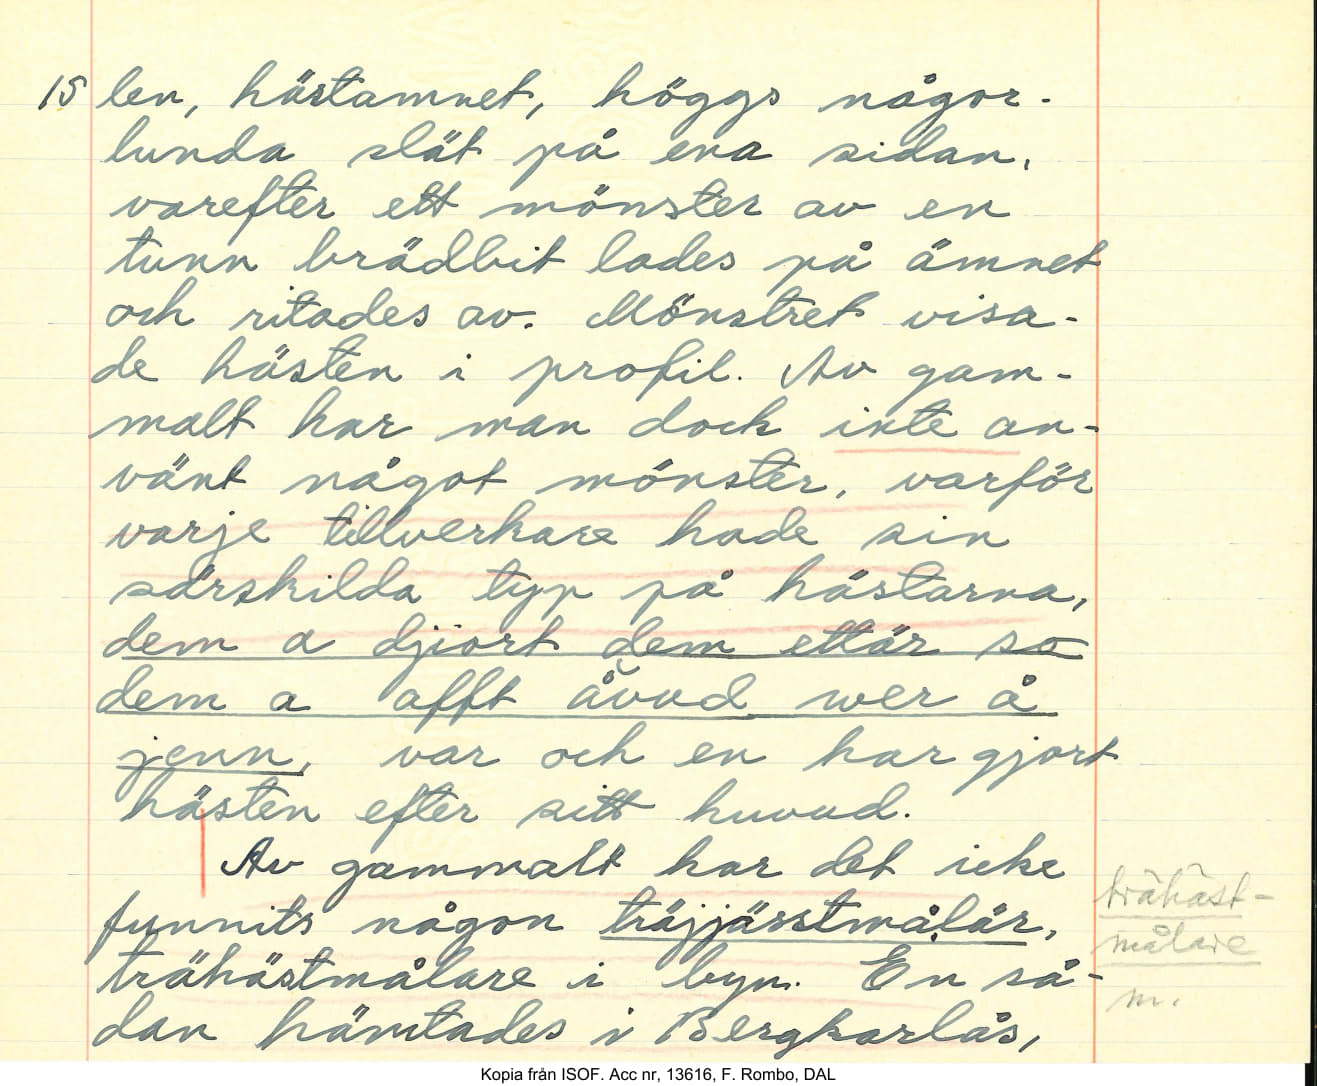 15 len, hästamnet, höggs någor-
lunda slät på ena sidan,
varefter ett mönster av en
tunn brädbit lades på ämnet
och ritades av. Mönstret visa-
de hästen i profil. Av gam-
malt har man dock inte an-
vänt något mönster, varför
varje tillverkare hade sin
särskilda typ på hästarna,
dem a djiort dem ettär so
dem a afft åvud wer å
jenn, var och en har gjort
hästen efter sitt huvud.
Av gammalt har det icke
funnits någon träjjässtmålär, trähäst-
trähästmålare i byn. En så- målare
dan hämtades i Bergkarlås, m.
Kopia från ISOF. Acc nr, 13616, F. Rombo, DAL